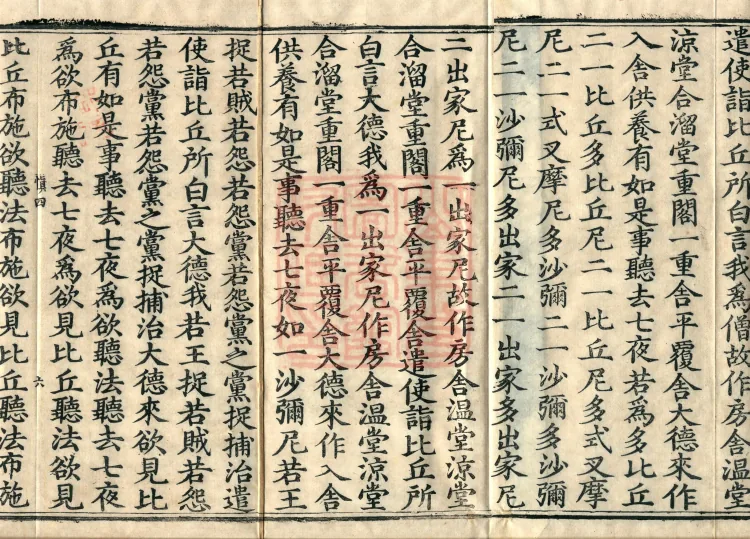 遣使詣比丘所白言我爲僧故作房舍温
涼堂合溜堂重閣一重舍平覆舍大德來作
入舍供養有如是事聽去七夜若爲多比丘
二一比丘多比丘尼二一比丘尼多式叉摩
尼二一式叉摩尼多沙彌二一沙彌多沙彌
尼二一沙彌尼多出家二一出家多出家尼
二出家尼爲一出家尼故作房舍温堂涼堂
合溜堂重閣一重舍平覆舍遣使詣比丘所
白言大德我爲一出家尼作房舍温堂涼堂
合溜堂重閣一重舍平覆舍大德來作入舍
供養有如是事聽去七夜如一沙彌尼若王
捉若賊若怨若怨黨若怨黨之黨捉捕治遣
使詣比丘所白言大德我若王捉若賊若怨
若怨黨若怨黨之黨捉捕治大德來欲見比
丘有如是事聽去七夜爲欲聽法聽去七夜
爲欲布施聽去七夜爲欲見比丘聽法欲見
慎四
六
比丘布施欲聽法布施欲見比丘聽法布施